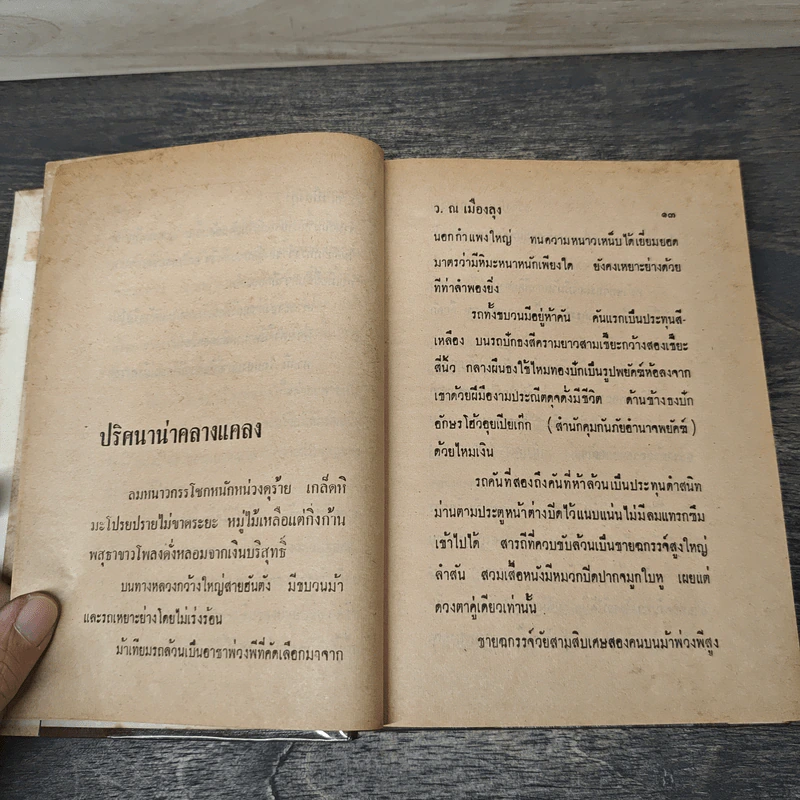 ปริศนาน่าคลางแคลง
ลมหนาวกรรโชกหนักหน่วงดุร้าย เกล็ดหิ
มะโปรยปรายไม่ขาดระยะ หมู่ไม้เหลือแต่กิ่งก้าน
พสุธาขาวโพลงดั่งหลอมจากเงินบริสุทธิ์
บนทางหลวงกว้างใหญ่สายฮันตัง มีขบวนม้า
และรถเหยาะย่างโดยไม่เร่งร้อน
ม้าเทียมรถล้วนเป็นอาชาพ่วงพีที่คัดเลือกมาจาก
ว. ณ เมืองลุง
๑๓
นอกกำแพงใหญ่ ทนความหนาวเหน็บได้เยี่ยมยอด
มาตรว่ามีหิมะหนาหนักเพียงใด ยังคงเหยาะย่างด้วย
ทีท่าลำพองยิ่ง
รถทั้งขบวนมีอยู่ห้าคัน คันแรกเป็นประทุนสี-
เหลือง บนรถปักธงสีครามยาวสามเชียะกว้างสองเชียะ
สี่นิ้ว กลางผืนธงใช้ไหมทองปักเป็นรูปพยัคฆ์ห้อลงจาก
เขาด้วยฝีมืองามประณีตดุจดั่งมีชีวิต ด้านข้างธงปัก
อักษรโฮ้วอุยเปียเก็ก ( สำนักคุมกันภัยอำนาจพยัคฆ์ )
ด้วยไหมเงิน
รถคันที่สองถึงคันที่ห้าล้วนเป็นประทุนดำสนิท
ม่านตามประตูหน้าต่างปิดไว้แนบแน่นไม่มีลมแทรกซึม
เข้าไปได้ สารถีที่ควบขับล้วนเป็นชายฉกรรจ์สูงใหญ่
ล่ำสัน สวมเสื้อหนังมีหมวกปีดปากจมูกใบหู เผยแต่
ดวงตาคู่เดียวเท่านั้น
ชายฉกรรจ์วัยสามสิบเศษสองคนบนม้าพ่วงพีสูง